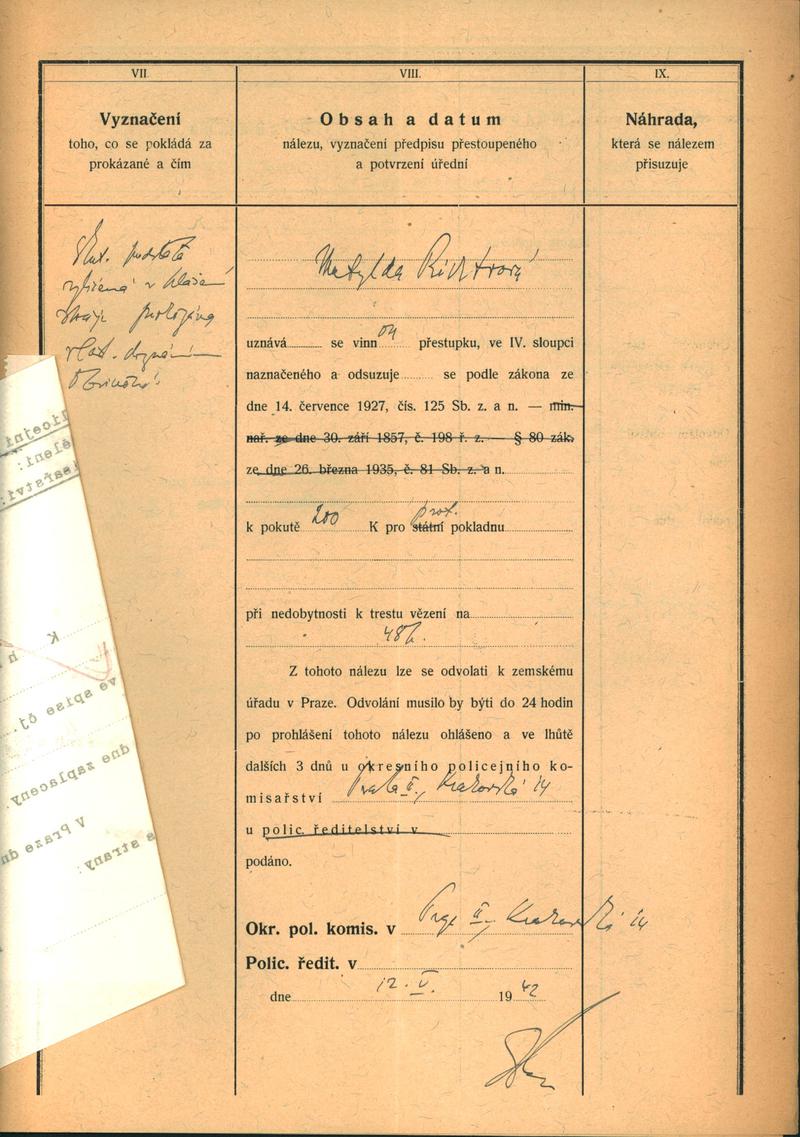 VII.
Vyznačení
toho, co se pokládá za
prokázané a čím
VIII.
Obsah a datum
nálezu, vyznačení předpisu přestoupeného
a potvrzení úřední
IX.
Náhrada,
která se nálezem
přisuzuje
Skut. podstata
vylíčená v hlášení
stráže
vlast. doznáním
obviněné
Matylda Richtrová
uznává se vinn ou přestupku, ve IV. sloupci
naznačeného a odsuzuje se podle zákona ze
dne 14. července 1927, čís. 125 Sb. z. a n. — min.
nař. ze dne 30. září 1857, č. 198 ř. z. — § 80 zák.
ze dne 26. března 1935, č. 81 Sb. z. a n.
k pokutě 200 K pro státní prot. pokladnu
při nedobytnosti k trestu vězení na
48 h.
Z tohoto nálezu lze se odvolati k zemskému
úřadu v Praze. Odvolání musilo by býti do 24 hodin
po prohlášení tohoto nálezu ohlášeno a ve lhůtě
dalších 3 dnů u okresního policejního ko-
misařství Praha II., Krakovská 14
u polic. ředitelství v
podáno.
Okr. pol. komis. v Praze II., Krakovská 14
Polic. ředit. v
dne 12. V. 1942
K
ve spise čj.
dne zaplaceny.
V Praze dn
strany: